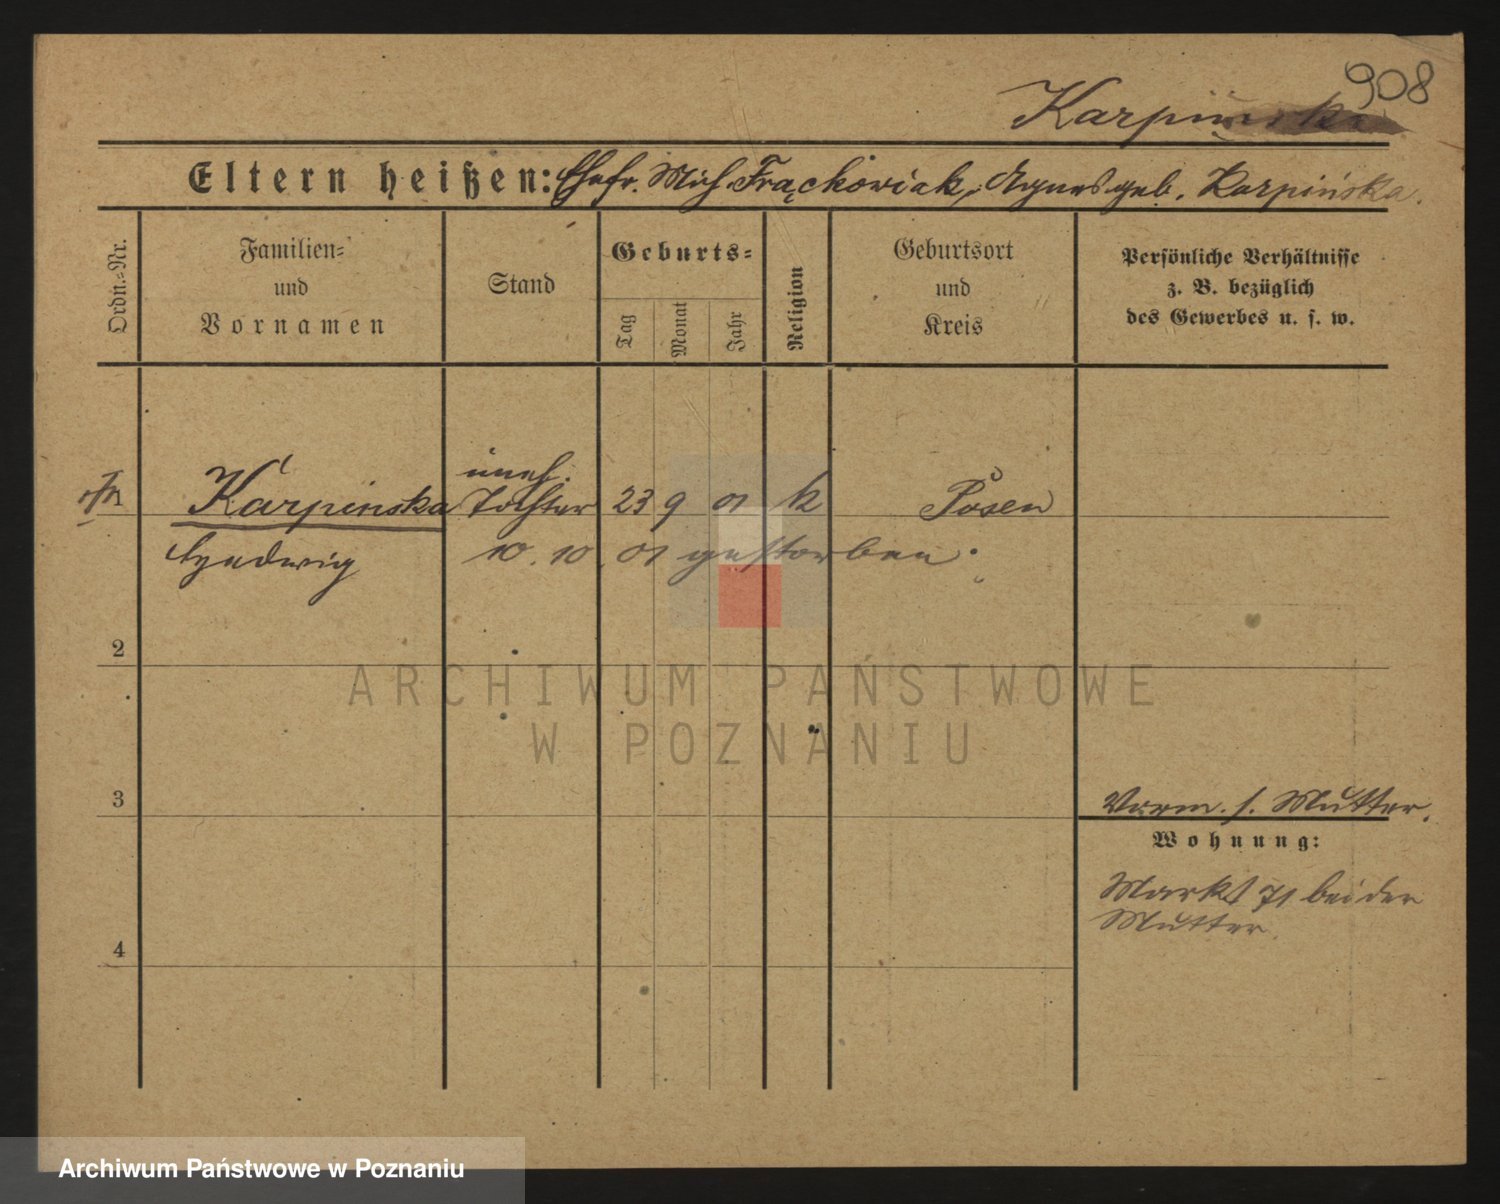 908
Karpinska
Eltern heißen: Ehefr. Mich. Frąckowiak, Agnes geb. Karpińska.
Ordn.=Nr.
Familien=
und
Vornamen
Stand
Geburts=
Tag
Monat
Jahr
Religion
Geburtsort
und
Kreis
Persönliche Verhältnisse
z. B. bezüglich
des Gewerbes u. s. w.
1
Karpinska
Hedwig
uneh.
Tochter
23 9 01 k Posen
10. 10. 01 gestorben.
2
3
4
Verm. s. Mutter.
Wohnung:
Markt 71 bei der
Mutter.
ARCHIWUM PAŃSTWOWE
W POZNANIU
Archiwum Państwowe w Poznaniu